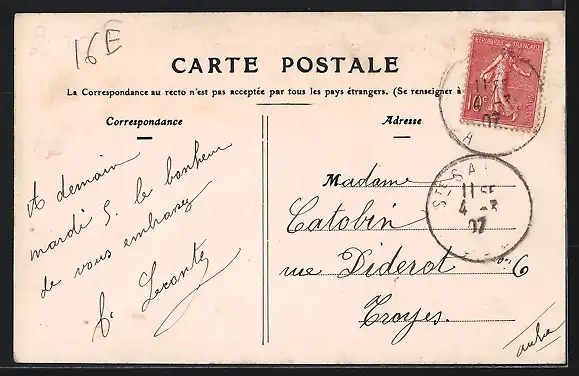 16E
CARTE POSTALE
La Correspondance au recto n'est pas acceptée par tous les pays étrangers. (Se renseigner à
Correspondance
A demain
mardi 5. le bonheur
de vous embrasser
Leconte
Adresse
Madame
Catobin
rue Diderot 6
Troyes.
Aube
REPUBLIQUE FRANÇAISE
10c
11
07
A
STE SA
11 SE
4 -3
07